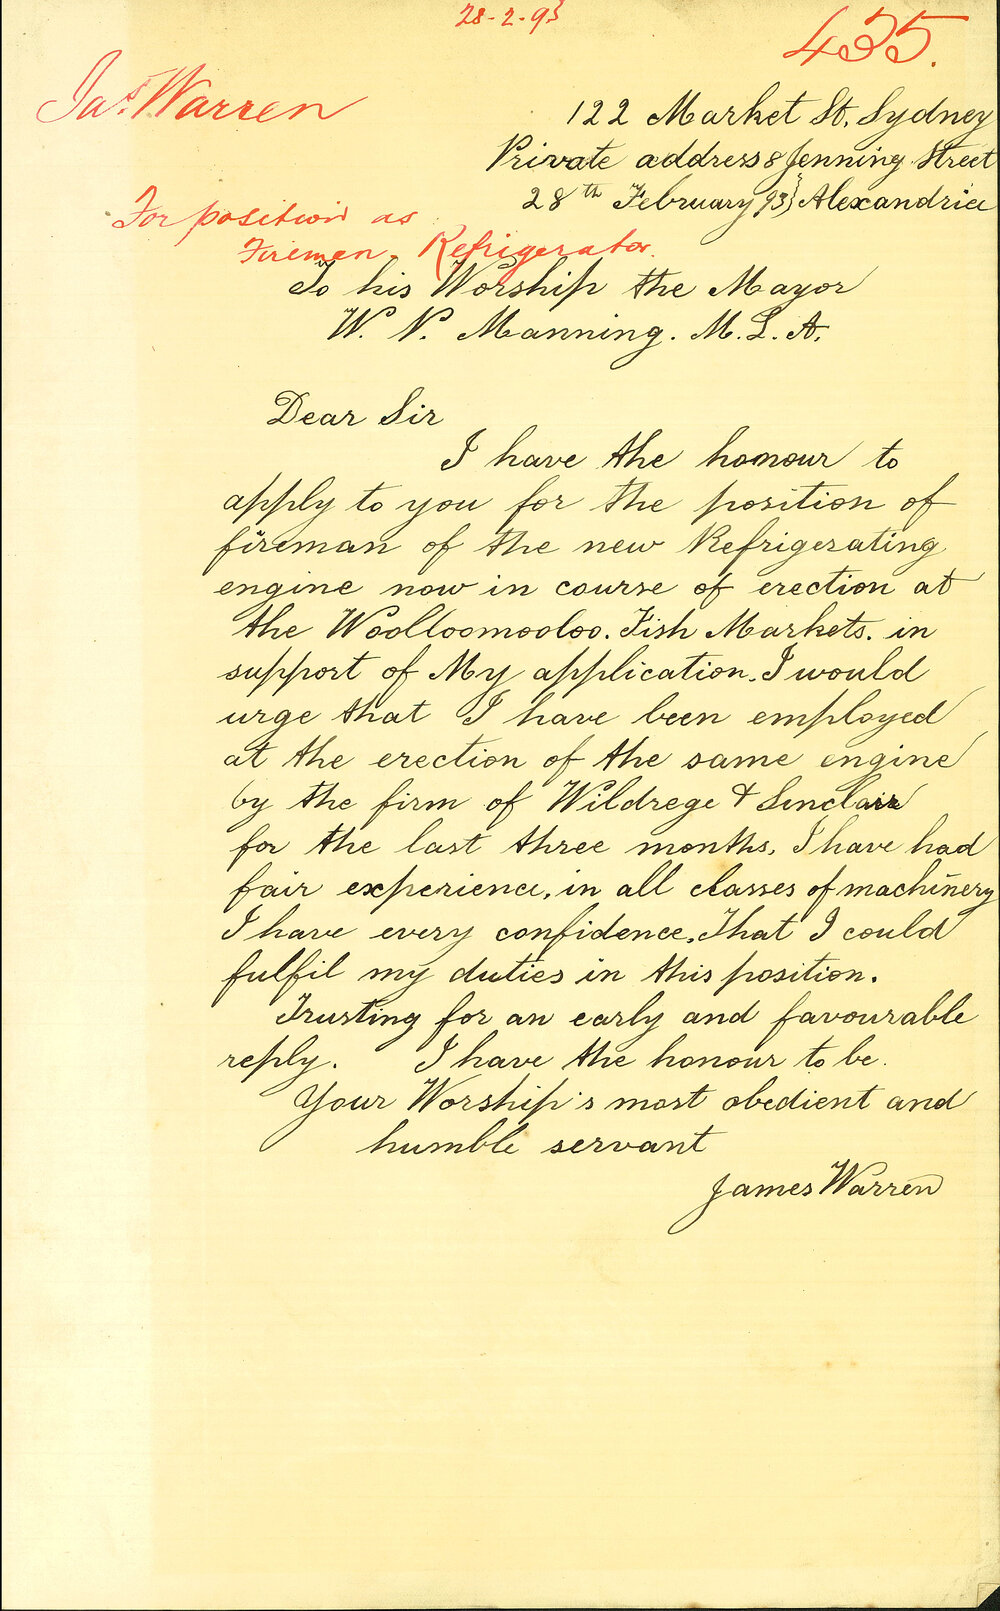 28-2-93
435.
Jas. Warren
122 Market St, Sydney
Private address 8 Jenning Street
28th February 93} Alexandria
For position as
Firemen, Refrigerator.
To his Worship the Mayor
W. P. Manning. M. L. A.
Dear Sir
I have the honour to
apply to you for the position of
fireman of the new Refrigerating
engine now in course of erection at
the Woolloomooloo. Fish Markets. in
support of My application. I would
urge that I have been employed
at the erection of the same engine
by the firm of Wildrege & Sinclair
for the last three months, I have had
fair experience, in all classes of machinery
I have every confidence. That I could
fulfil my duties in this position.
Trusting for an early and favourable
reply. I have the honour to be.
Your Worship's most obedient and
humble servant
James Warren